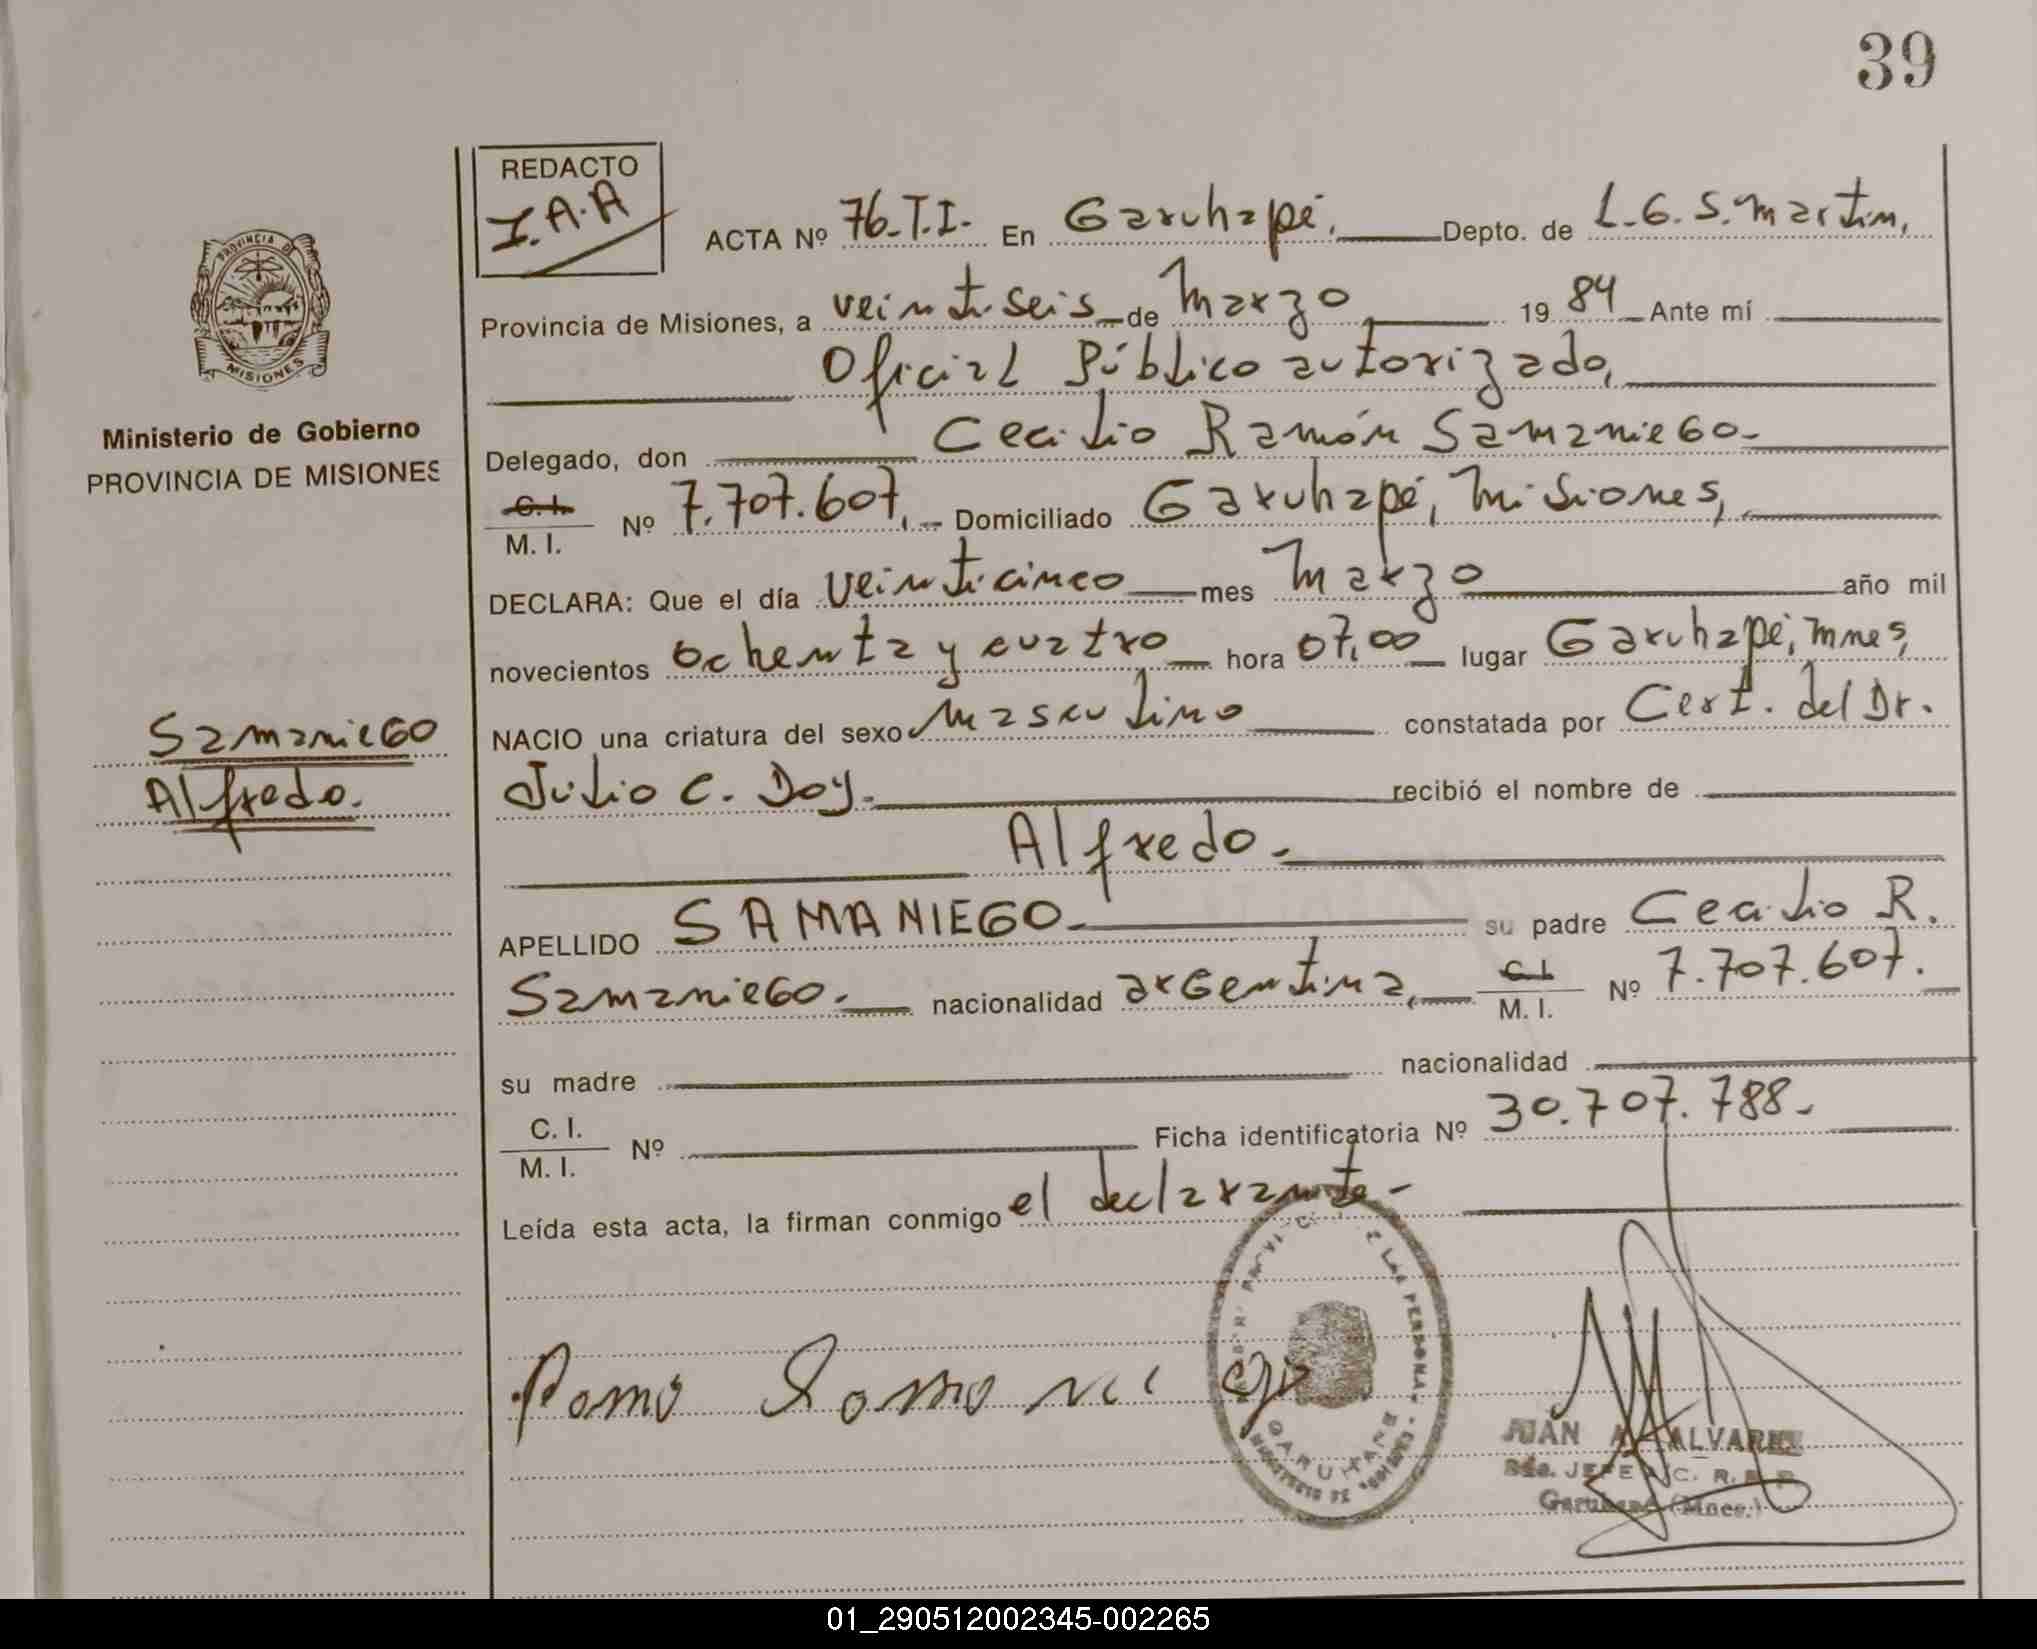 39
REDACTO
I.A.A
ACTA Nº 76.T.I. En Garuhapé, Depto. de L.G.S.Martin,
Provincia de Misiones, a veintiseis de Marzo 1984 Ante mí
Oficial Público autorizado,
Delegado, don Cecilio Ramón Samaniego
C.I. / M. I. Nº 7.707.607, Domiciliado Garuhapé, Misiones,
DECLARA: Que el día veinticinco mes Marzo año mil
novecientos ochenta y cuatro hora 07,00 lugar Garuhapé, Mnes,
NACIO una criatura del sexo masculino constatada por Cert. del Dr.
Julio C. Doy. recibió el nombre de
Alfredo.
APELLIDO SAMANIEGO su padre Cecilio R.
Samaniego. nacionalidad argentina, C.I. / M. I. Nº 7.707.607.
su madre nacionalidad
C. I. / M. I. Nº Ficha identificatoria Nº 30.707.788.
Leída esta acta, la firman conmigo el declarante
PROVINCIA DE
MISIONES
Ministerio de Gobierno
PROVINCIA DE MISIONES
Samaniego
Alfredo.
LAS PERSONAS
GARUHAPE
JUAN A. ALVAREZ
JEFE
Garuhapé (Mnes.)
01_290512002345-002265